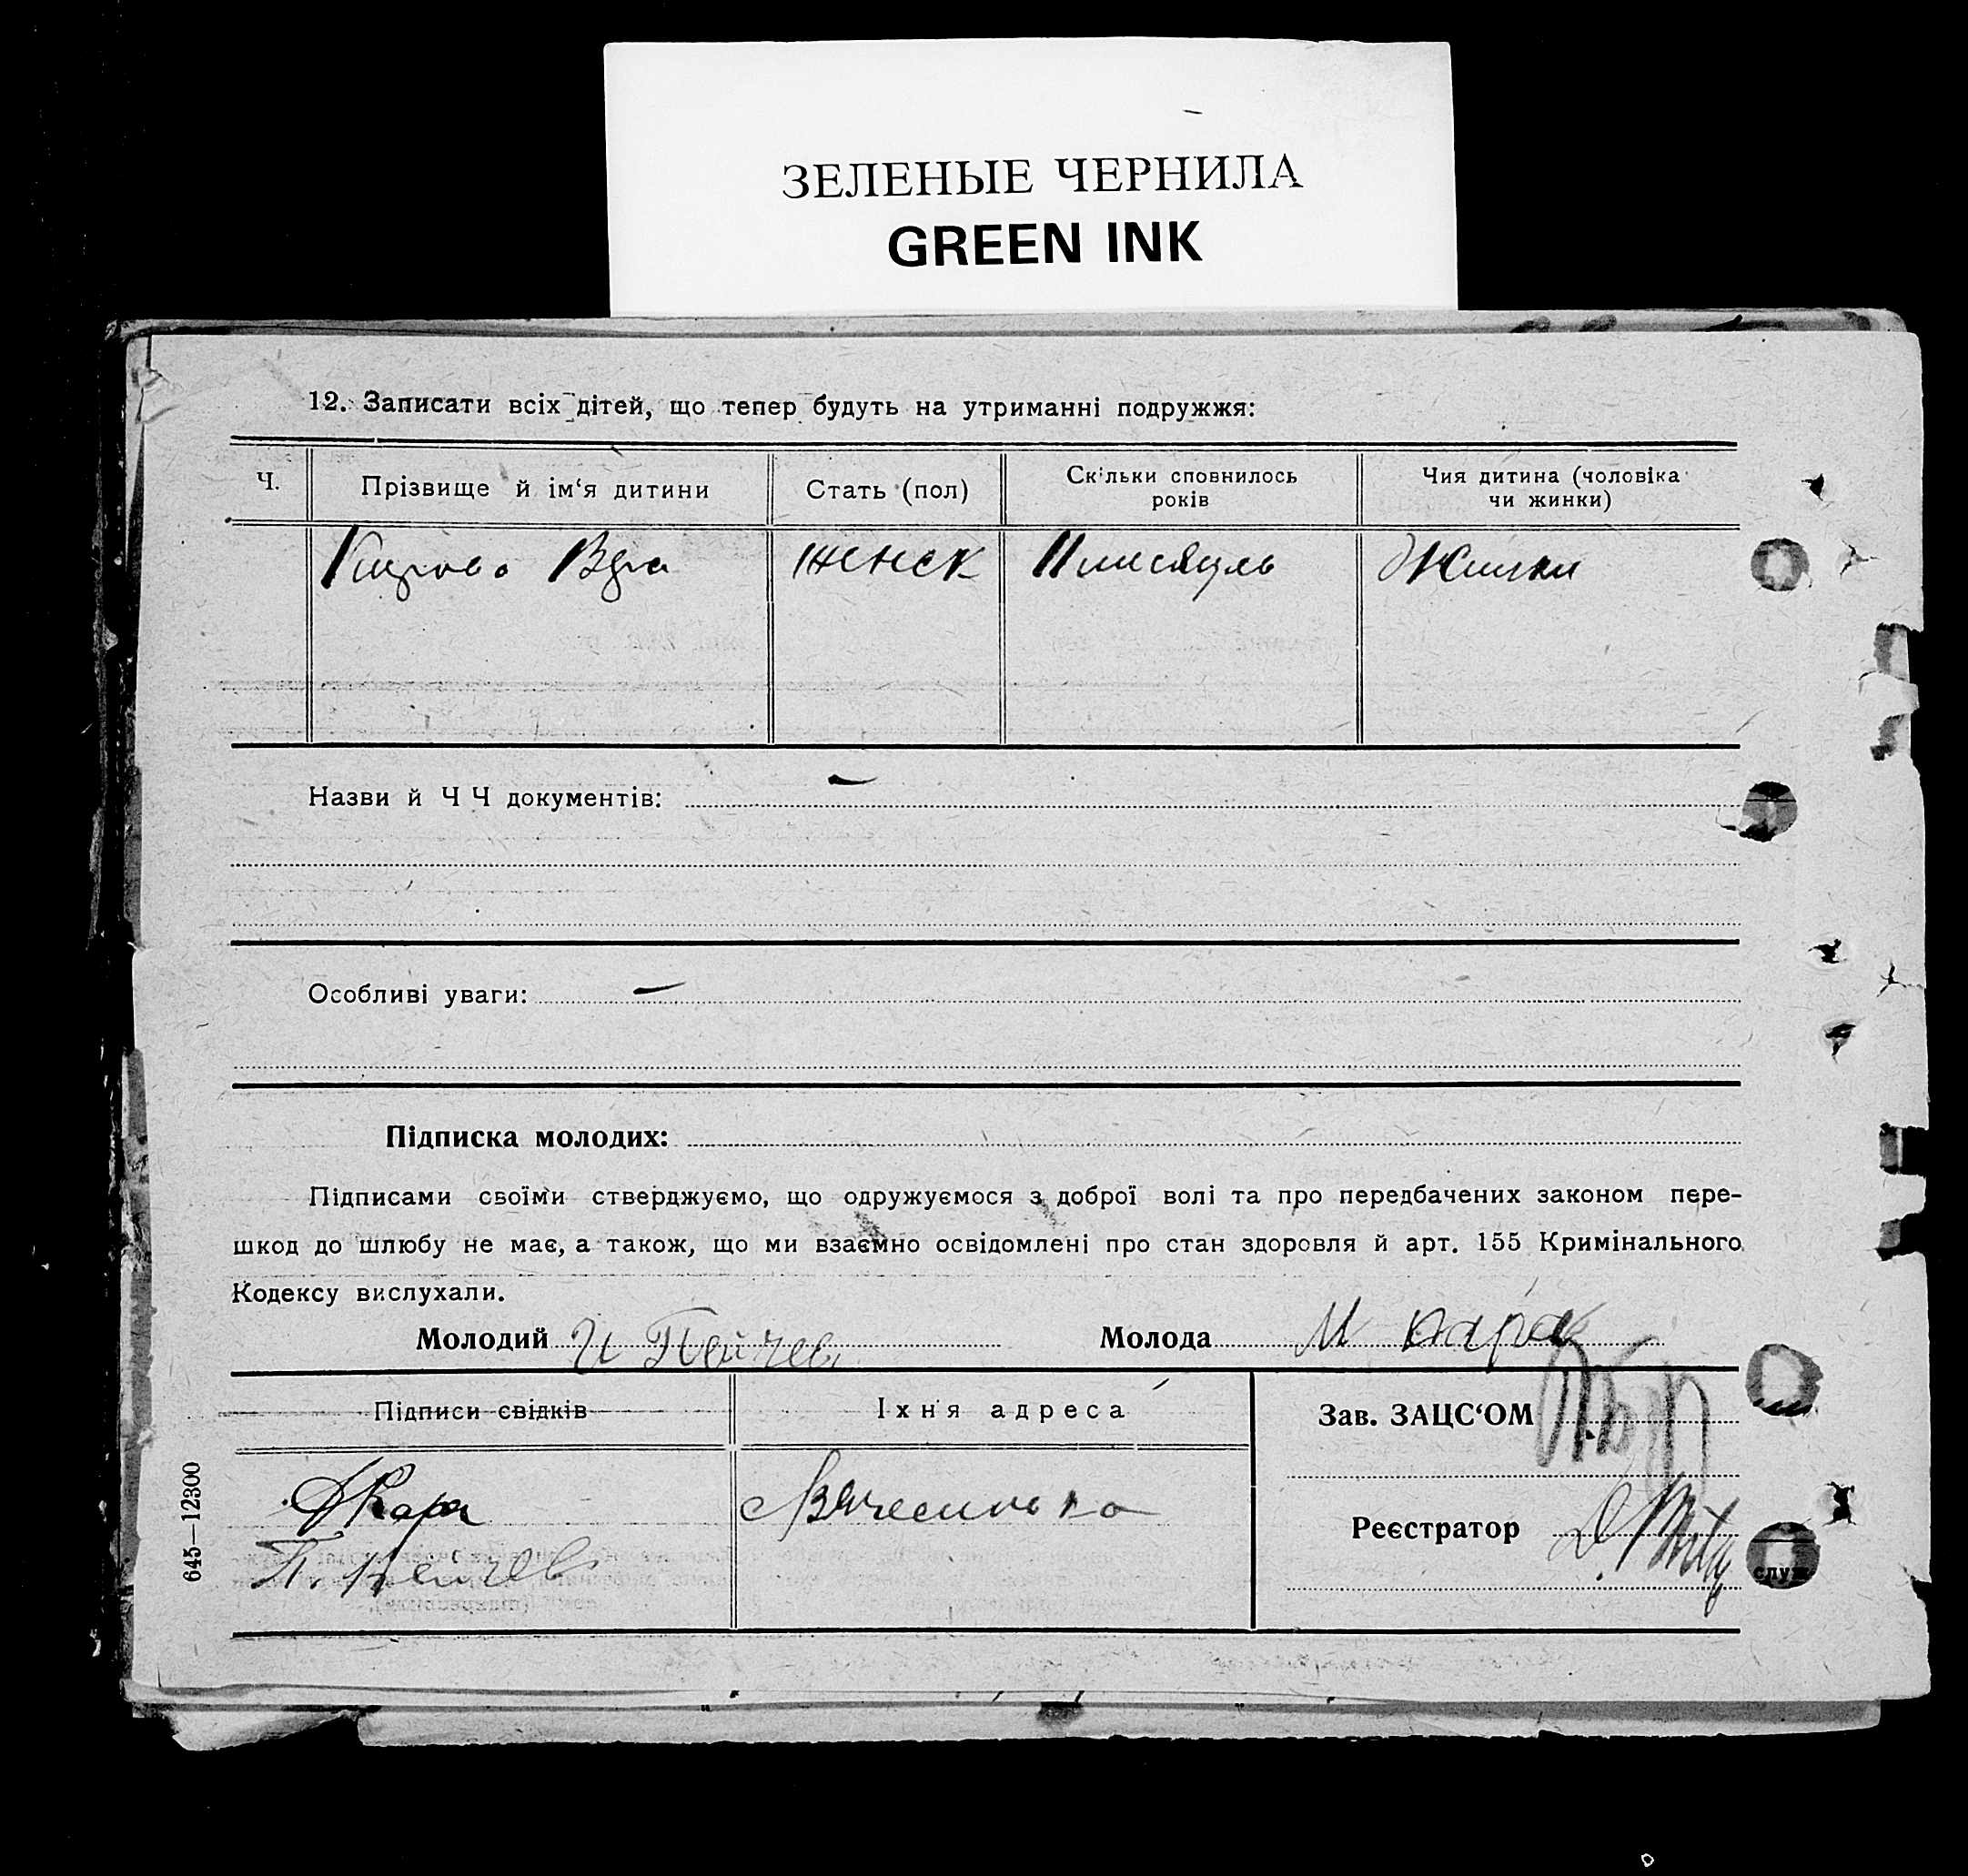 ЗЕЛЕНЫЕ ЧЕРНИЛА
GREEN INK
12. Записати всіх дітей, що тепер будуть на утриманні подружжя:
Ч.
Прізвище й ім‘я дитини
Стать (пол)
Скільки сповнилось
років
Чия дитина (чоловіка
чи жинки)
женск
Жинки
Назви й Ч Ч документів: –
Особливі уваги: –
Підписка молодих:
Підписами своїми стверджуємо, що одружуємося з доброї волі та про передбачених законом пере-
шкод до шлюбу не має, а також, що ми взаємно освідомлені про стан здоровля й арт. 155 Кримінального
Кодексу вислухали.
Молодий И Пейчев
Молода М Кара
Підписи свідків
Їхня адреса
Зав. ЗАЦС‘ОМ
Д Кара
П. Пейчев
Реєстратор
645—12300
служ